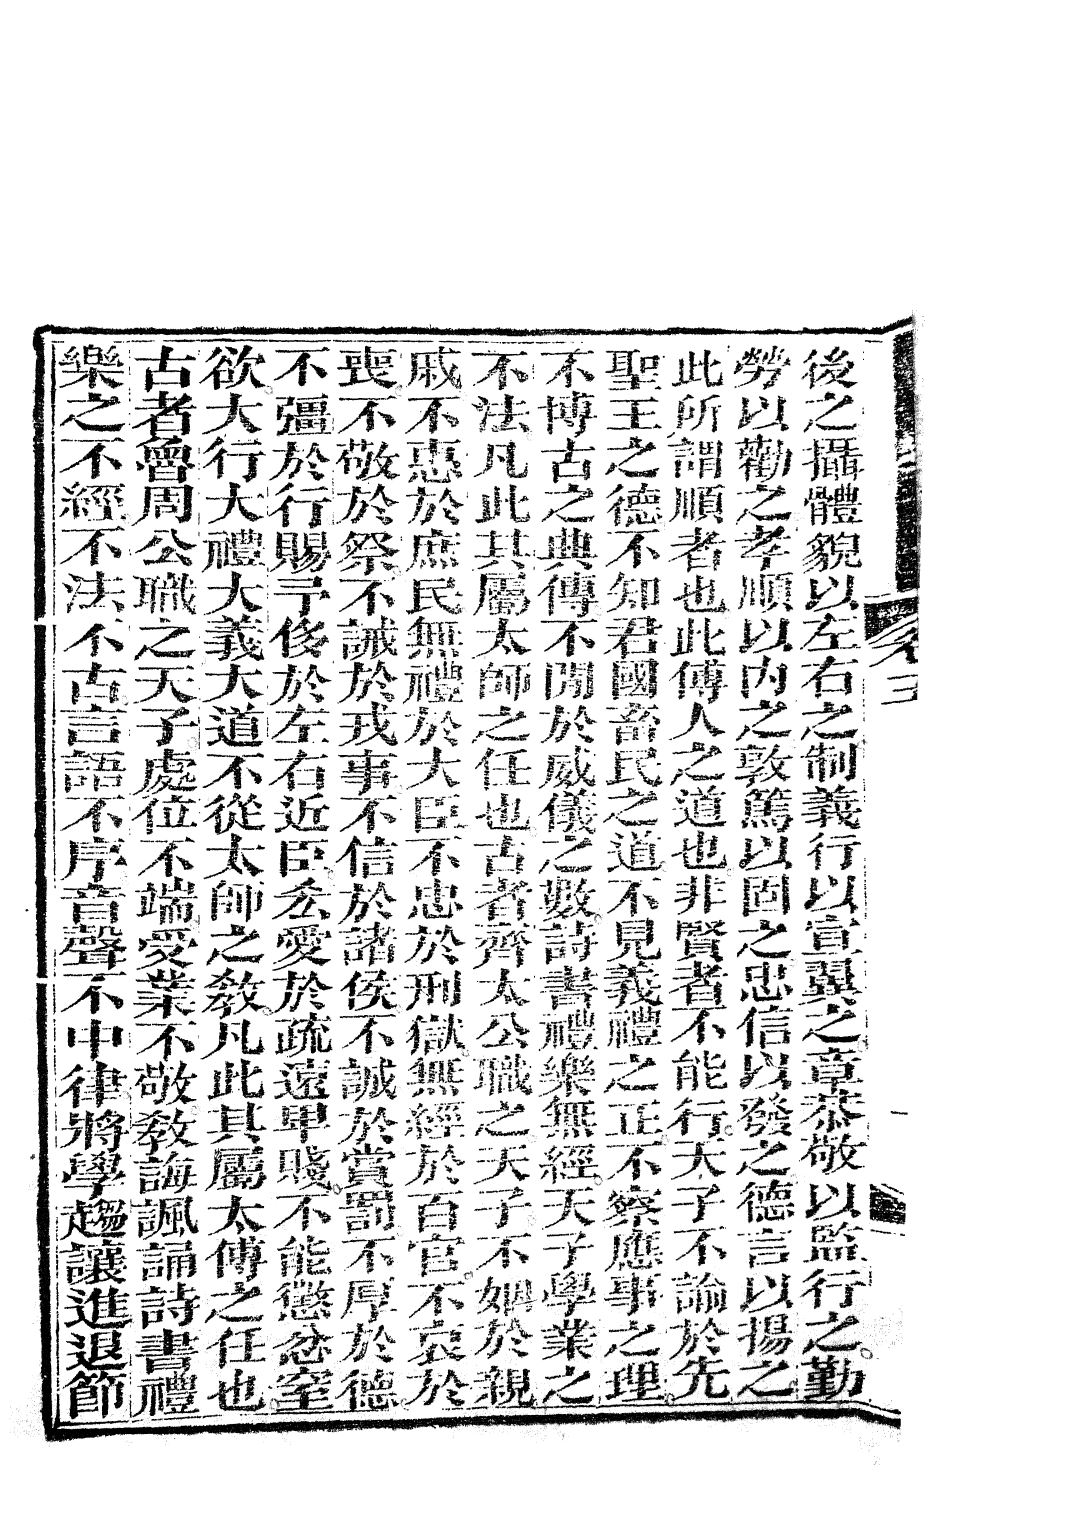 後之攝體貌以左右之制義行以宣翼之章恭敬以監行之勤
勞以勸之孝順以內之敦篤以固之忠信以發之德言以揚之
此所謂順者也此傅人之道也非賢者不能行天子不論於先
聖王之德不知君國畜民之道不見義禮之正不察應事之理
不博古之典傳不閒於威儀之數詩書禮樂無經天子學業之
不法凡此其屬太師之任也古者齊太公職之天子不姻於親
戚不惠於庶民無禮於大臣不忠於刑獄無經於百官不哀於
喪不敬於祭不誡於戎事不信於諸侯不誠於賞罰不厚於德
不彊於行賜予侈於左右近臣吝愛於疏遠卑賤不能懲忿窒
欲大行大禮大義大道不從太師之敎凡此其屬太傅之任也
古者魯周公職之天子處位不端受業不敬敎誨諷誦詩書禮
樂之不經不法不古言語不序音聲不中律將學趨讓進退節
卷三